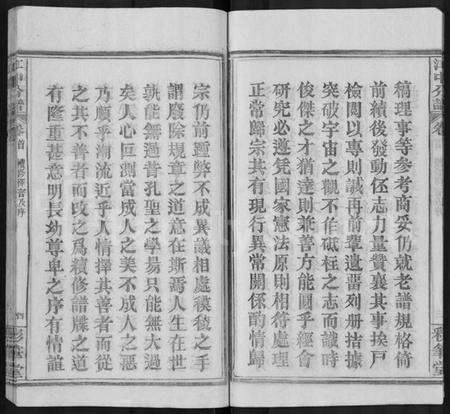 稿理事等参考商妥仍就老譜規格倚
前績後發動侄志力量贊襄其事挨戶
檢閱以專則誠再前輩遺畱列册拮據
突破宇宙之觀不作砥柱之志而識時
俊傑之才猶達則兼善方能圓乎經會
研究必遵凭國家憲法原則相符處理
正常歸宗共有現行異常關係酌情歸
宗仍前置弊不成異議相處稷稜之手
謂廢除規章之道意在斯焉人生在世
孰能無過昔孔聖之學易只能無大過
矣人心叵測當成人之美不成人之惡
乃順乎清流近乎人情擇其善者而從
之其不善者而改之爲續修譜牒之道
有隆重甚意明長幼尊卑之序有情誼
江 卷首
彩筆堂
彩筆堂